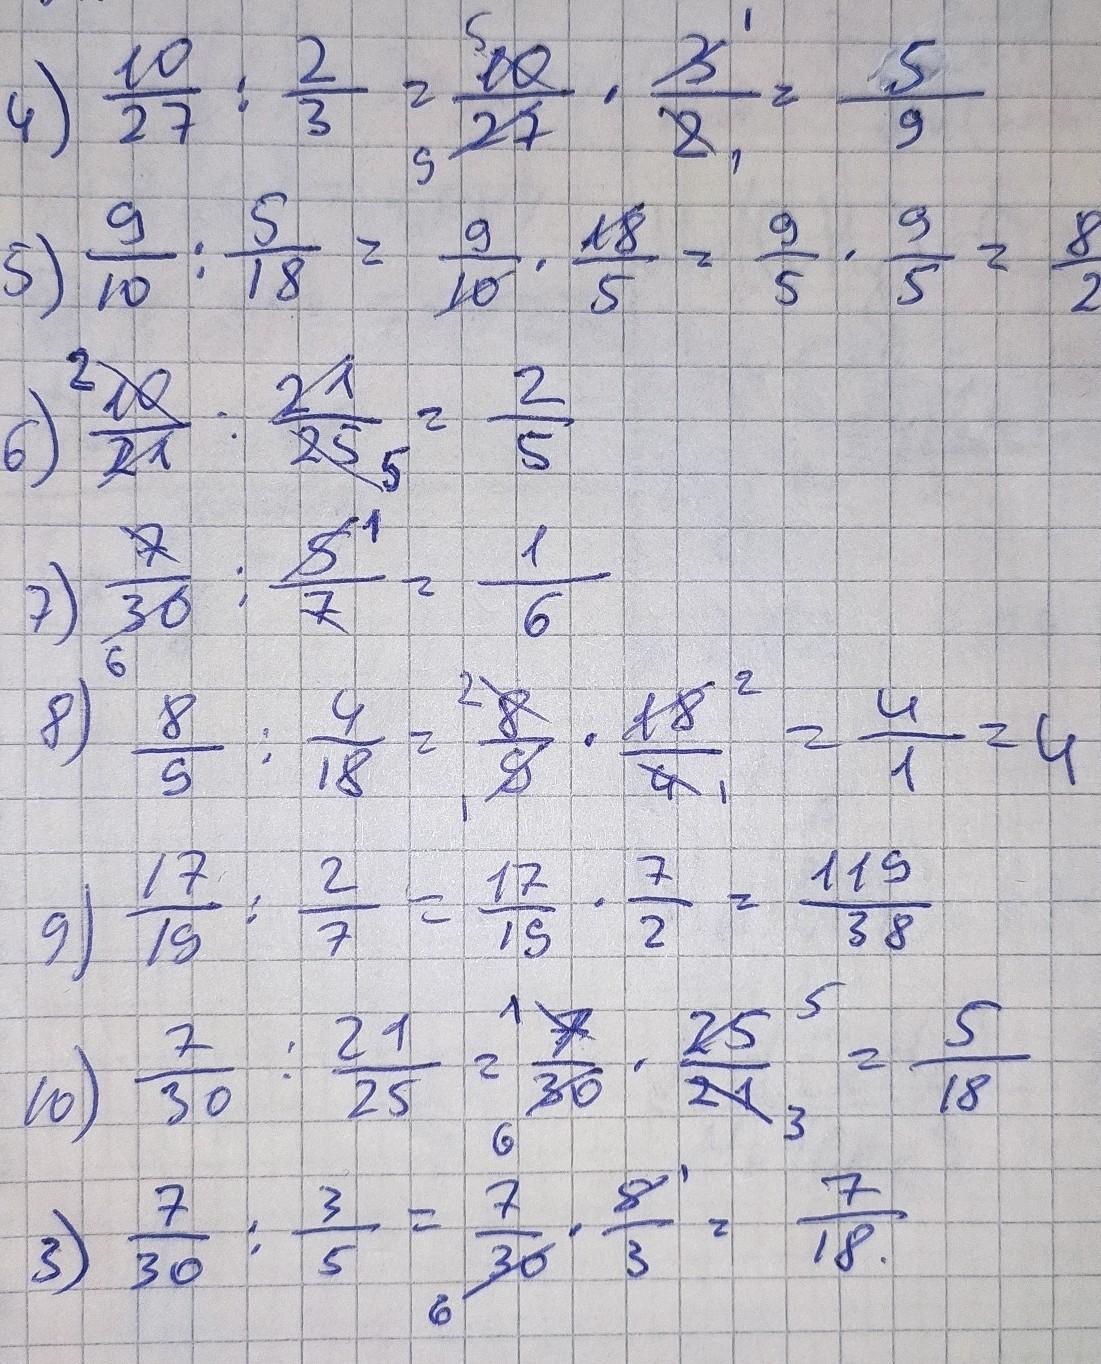 4) 10/27 : 2/3 = 5 10/27 9 · 3/2 1 1 = 5/9
5) 9/10 : 5/18 = 9/10 · 18/5 = 9/5 · 9/5 = 8/2
6) 2 10/21 : 21/25 5 = 2/5
7) 7/30 6 : 5/7 1 = 1/6
8) 8/9 : 4/18 = 2 8/9 1 · 18/4 2 1 = 4/1 = 4
9) 17/19 : 2/7 = 17/19 · 7/2 = 119/38
10) 7/30 : 21/25 = 1 7/30 6 · 25/21 5 3 = 5/18
3) 7/30 : 3/5 = 7/30 6 · 5/3 1 = 7/18.